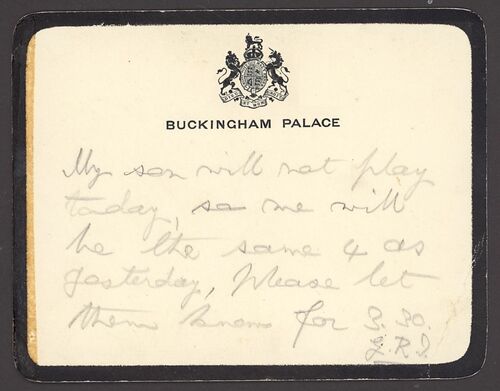 BUCKINGHAM PALACE
My son will not play
today, so we will
be the same 4 as
yesterday, Please let
them know for 3.30.
G.R.I.